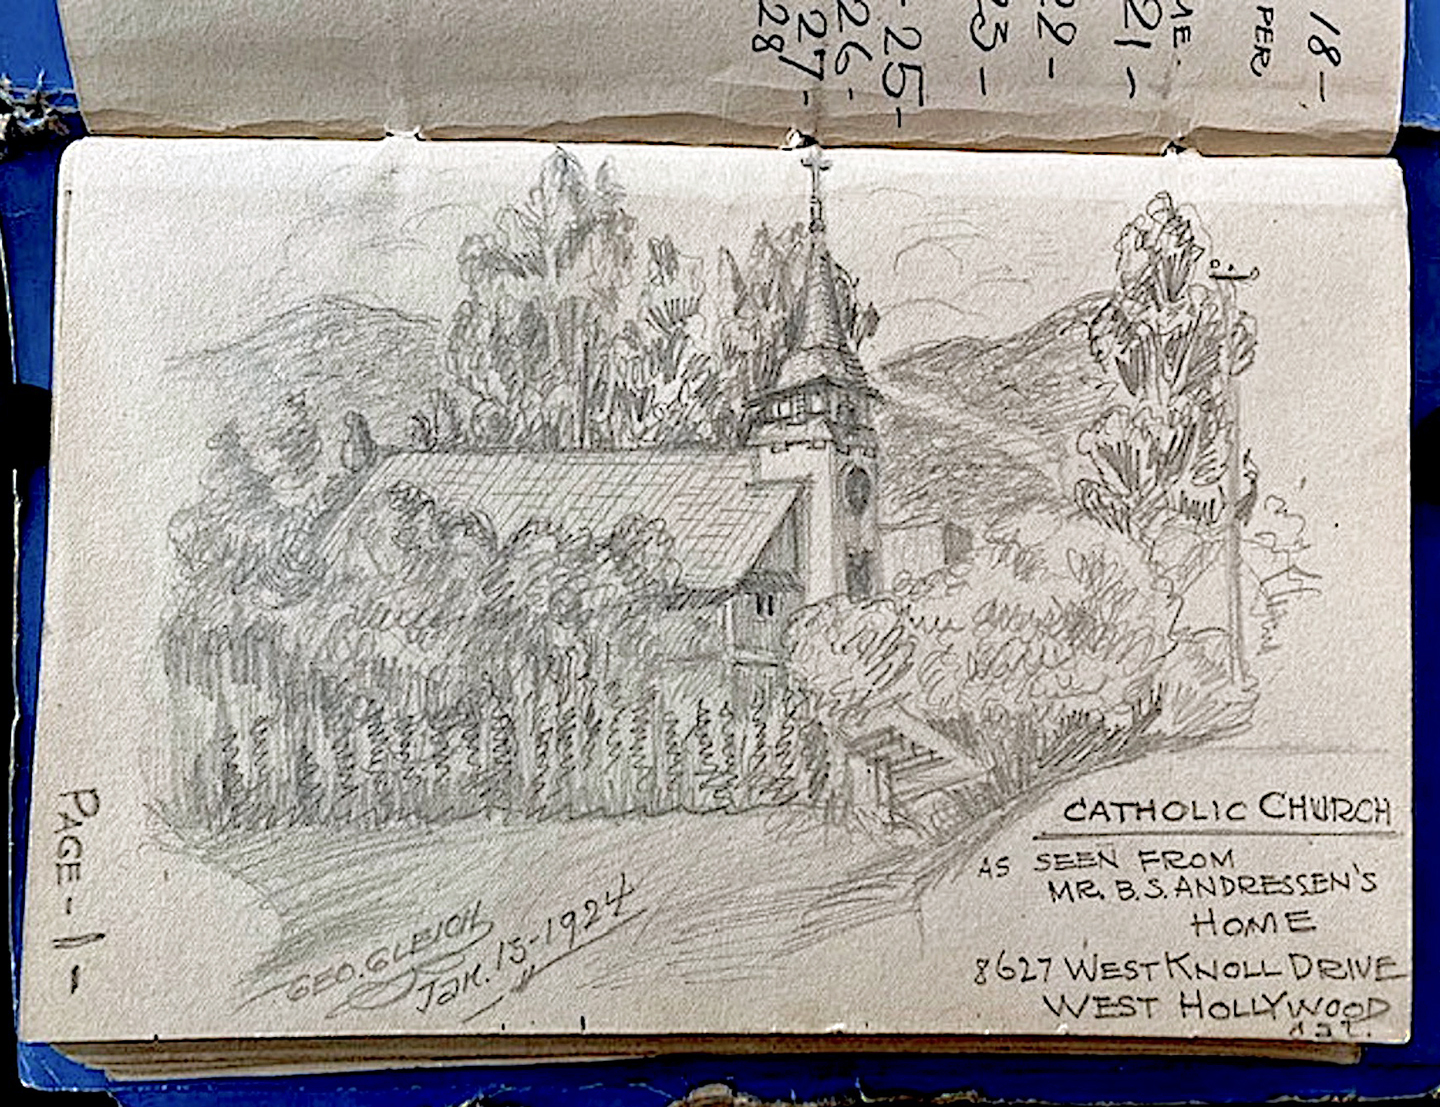 18-
PER
ME.
21-
22-
23-
-25-
26-
27-
28
PAGE-1-
CATHOLIC CHURCH
AS SEEN FROM
MR. B.S. ANDRESSEN'S
HOME
8627 WEST KNOLL DRIVE
WEST HOLLYWOOD
CAL.
GEO. GLEICH
Jan. 15-1924